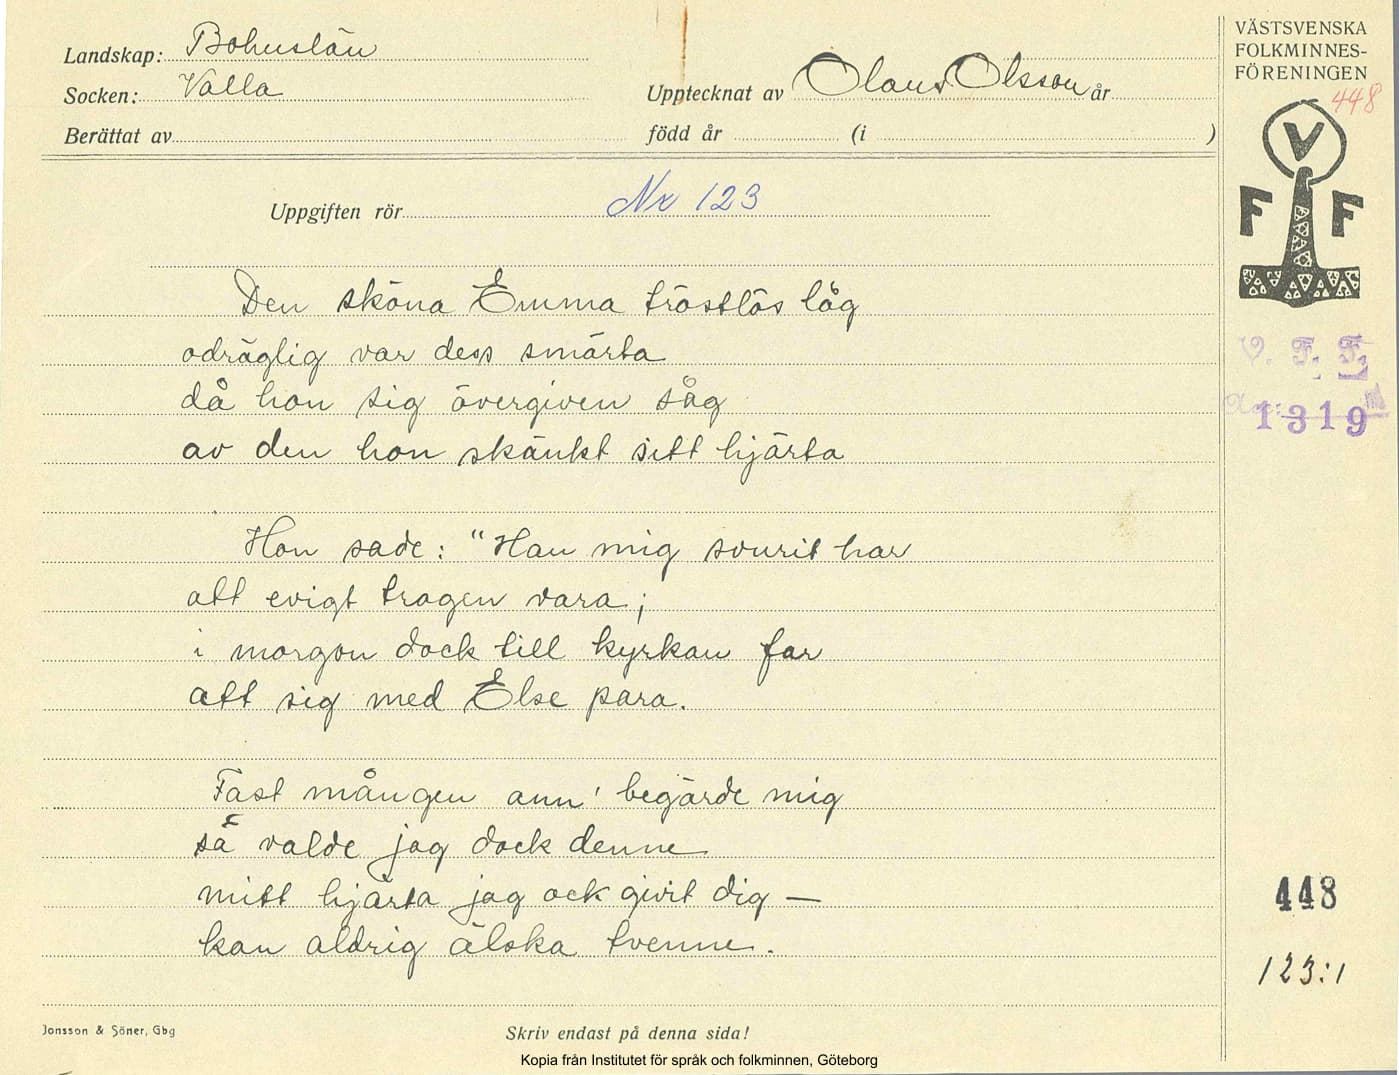 Landskap: Bohuslän
Socken: Valla
Upptecknat av Olaus Olsson år
Berättat av
född år (i )
Uppgiften rör Nr 123
Den sköna Emma tröstlös låg
odräglig var dess smärta
då hon sig övergiven såg
av den hon skänkt sitt hjärta
Hon sade: "Han mig svurit har
att evigt trogen vara;
i morgon dock till kyrkan far
att sig med Else para.
Fast mången ann' begärde mig
så valde jag dock denne
mitt hjärta jag ock givit dig —
kan aldrig älska tvenne.
Jonsson & Söner, Gbg
Skriv endast på denna sida!
Kopia från Institutet för språk och folkminnen, Göteborg
VÄSTSVENSKA
FOLKMINNES-
FÖRENINGEN
448
V
F F
V. F. F.
1319
448
123:1